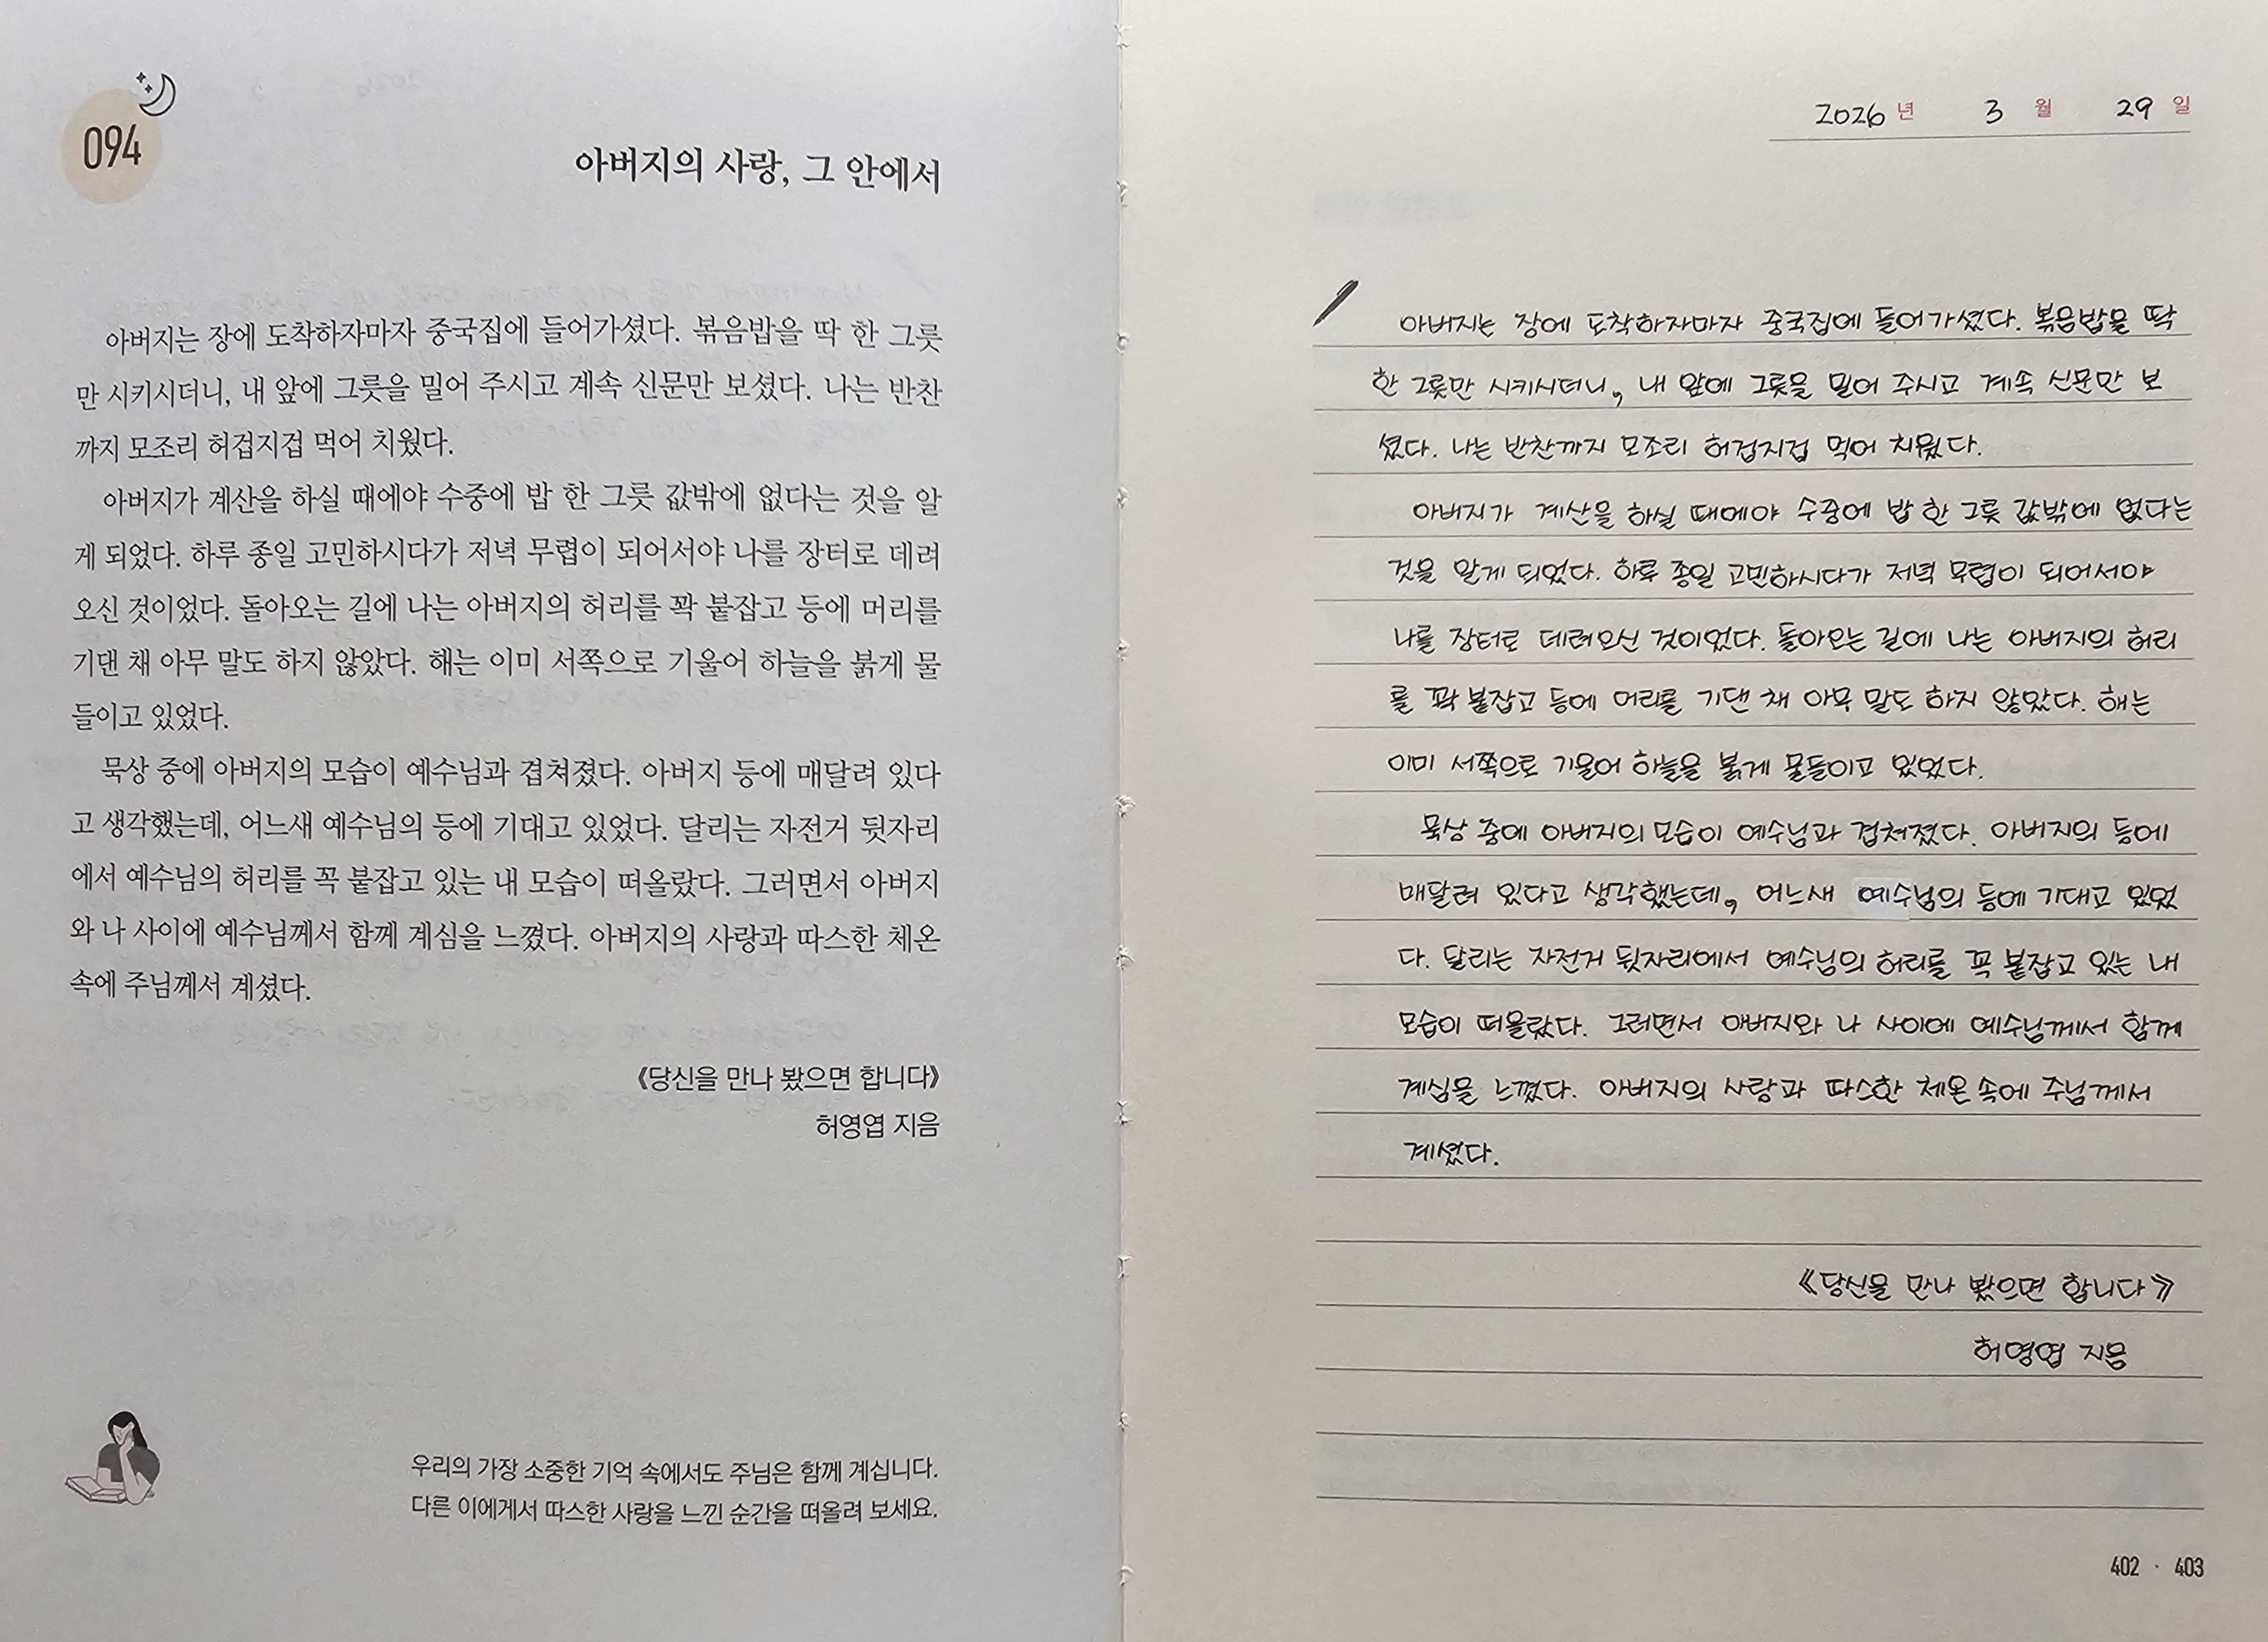 094
아버지의 사랑, 그 안에서
아버지는 장에 도착하자마자 중국집에 들어가셨다. 볶음밥을 딱 한 그릇
만 시키시더니, 내 앞에 그릇을 밀어 주시고 계속 신문만 보셨다. 나는 반찬
까지 모조리 허겁지겁 먹어 치웠다.
아버지가 계산을 하실 때에야 수중에 밥 한 그릇 값밖에 없다는 것을 알
게 되었다. 하루 종일 고민하시다가 저녁 무렵이 되어서야 나를 장터로 데려
오신 것이었다. 돌아오는 길에 나는 아버지의 허리를 꽉 붙잡고 등에 머리를
기댄 채 아무 말도 하지 않았다. 해는 이미 서쪽으로 기울어 하늘을 붉게 물
들이고 있었다.
묵상 중에 아버지의 모습이 예수님과 겹쳐졌다. 아버지 등에 매달려 있다
고 생각했는데, 어느새 예수님의 등에 기대고 있었다. 달리는 자전거 뒷자리
에서 예수님의 허리를 꼭 붙잡고 있는 내 모습이 떠올랐다. 그러면서 아버지
와 나 사이에 예수님께서 함께 계심을 느꼈다. 아버지의 사랑과 따스한 체온
속에 주님께서 계셨다.
《당신을 만나 봤으면 합니다》
허영엽 지음
우리의 가장 소중한 기억 속에서도 주님은 함께 계십니다.
다른 이에게서 따스한 사랑을 느낀 순간을 떠올려 보세요.
2026년 3월 29일
아버지는 장에 도착하자마자 중국집에 들어가셨다. 볶음밥을 딱
한 그릇만 시키시더니, 내 앞에 그릇을 밀어 주시고 계속 신문만 보
셨다. 나는 반찬까지 모조리 허겁지겁 먹어 치웠다.
아버지가 계산을 하실 때에야 수중에 밥 한 그릇 값밖에 없다는
것을 알게 되었다. 하루 종일 고민하시다가 저녁 무렵이 되어서야
나를 장터로 데려오신 것이었다. 돌아오는 길에 나는 아버지의 허리
를 꽉 붙잡고 등에 머리를 기댄 채 아무 말도 하지 않았다. 해는
이미 서쪽으로 기울어 하늘을 붉게 물들이고 있었다.
묵상 중에 아버지의 모습이 예수님과 겹쳐졌다. 아버지의 등에
매달려 있다고 생각했는데, 어느새 예수님의 등에 기대고 있었
다. 달리는 자전거 뒷자리에서 예수님의 허리를 꼭 붙잡고 있는 내
모습이 떠올랐다. 그러면서 아버지와 나 사이에 예수님께서 함께
계심을 느꼈다. 아버지의 사랑과 따스한 체온 속에 주님께서
계셨다.
《당신을 만나 봤으면 합니다》
허영엽 지음
402 · 403